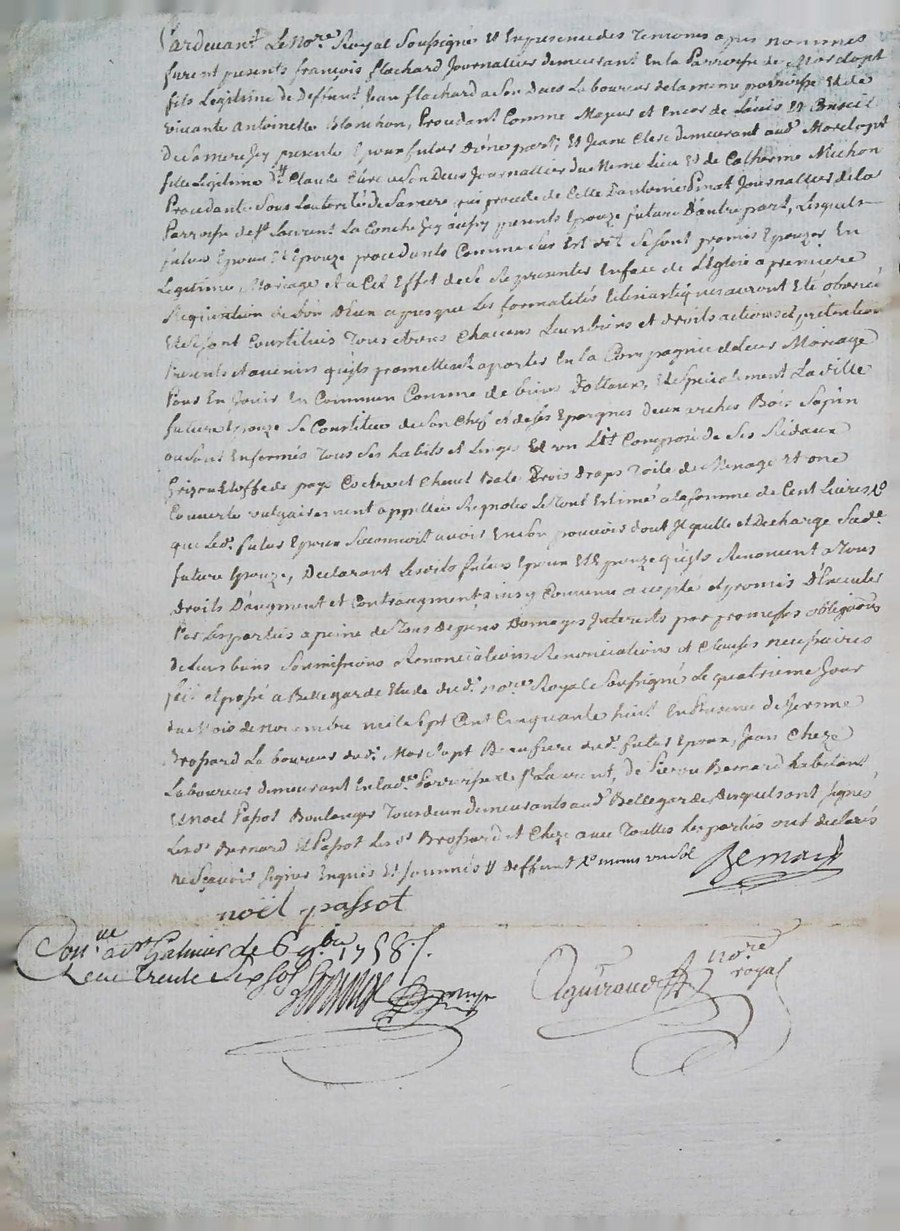 Pardevant Le Nore Royal Soussigné Et En presence des Temoins apres nommés
furent presents françois flachard Journallier demeurant En la Parroisse de Marclopt
fils Legitime de Deffunt Jean flachard a Son Deces Laboureur de la meme parroisse Et de
vivante Antoinette Blanchon, Procedant Comme Majeur et Encor de L'avis Et Conseil
De Sa mere Icy presente Epoux futur D'une part, Et Jeane Clerc demeurant aud. Marclopt
fille Legitime Claude Clerc a Son Deces Journallier du Meme Lieu Et de Catherine Michon
Procedante Sous Lautorité de Sa mere, qui procede de Celle D'antoine Pinat Journallier de la
Parroisse de St. Laurent La Conche Icy aussy presents Epouze future D'autre part, Lesquels
futurs Epoux Et Epouze procedants Comme dit Est ont de Se Sont promis Epouzer En
Legitime Mariage et a Cet Effet de Se Representer En face de L'Eglise a premiere
Requisition de L'un D'eux apres que Les formalités Eclesiastiques auront Eté observé
Et Se Sont Constitués Tous et uns Chacuns Leurs biens et droits actions et prétentions
Presents et avenirs qu'ils promettent aporter En La Compagnie de Leur Mariage
Pour En Jouir En Commun Comme de biens Dottaux, Et Specialement La ditte
future Epouze Se Constitue de Son Chef et de Ses Epargnes Deux arches Bois Sapin
ou Sont Enfermés Tous Ses habits et Linges Et un Lit Composé de Ses Rideaux
Grizon Etoffe de pays Chevet Bale Trois Draps Toile de Menage Et une
Couverte vulgairement appellée Le Tout Estimé a la Somme de Cent Livres
que Led. futur Epoux Reconnoit avoir En Son pouvoir dont Il quitte et Decharge Sade.
future Epouze, Declarant Lesdits futurs Epoux Et Epouze qu'ils Renoncent a Tous
Droits D'augment et Contraugment, ainsy Convenu accepté et promis D'Executer
Par Les parties a peine de Tous Depens Domages Interets par promesses obligations
de Leurs biens Soumissions Renonciations Renonciations et Clauses necessaires
fait et passé a Bellegarde Etude dud. nore. Royal Soussigné Le quatrieme Jour
du Mois de novembre mil Sept Cent Cinquante huit En Presence de Jerome
Brossard Laboureur dud. Marclopt Beaufrere dud. futur Epoux, Jean Cheze
Laboureur demeurant En lade. Parroisse de St Laurent, de Bernard habitant
Et noel Passot Boulanger Tous deux demeurants aud. Bellegarde Desquels ont Signés
Lesd. Bernard Et Passot Lesd. Brossard et Cheze avec Touttes Les parties ont declarés
ne Sçavoir Signer Enquis Et Sommés
Bernard
noël passot
Conlle. a St Galmier le 6 9bre 1758
Reçu Trente Six sols
Aguiraud Nore royal